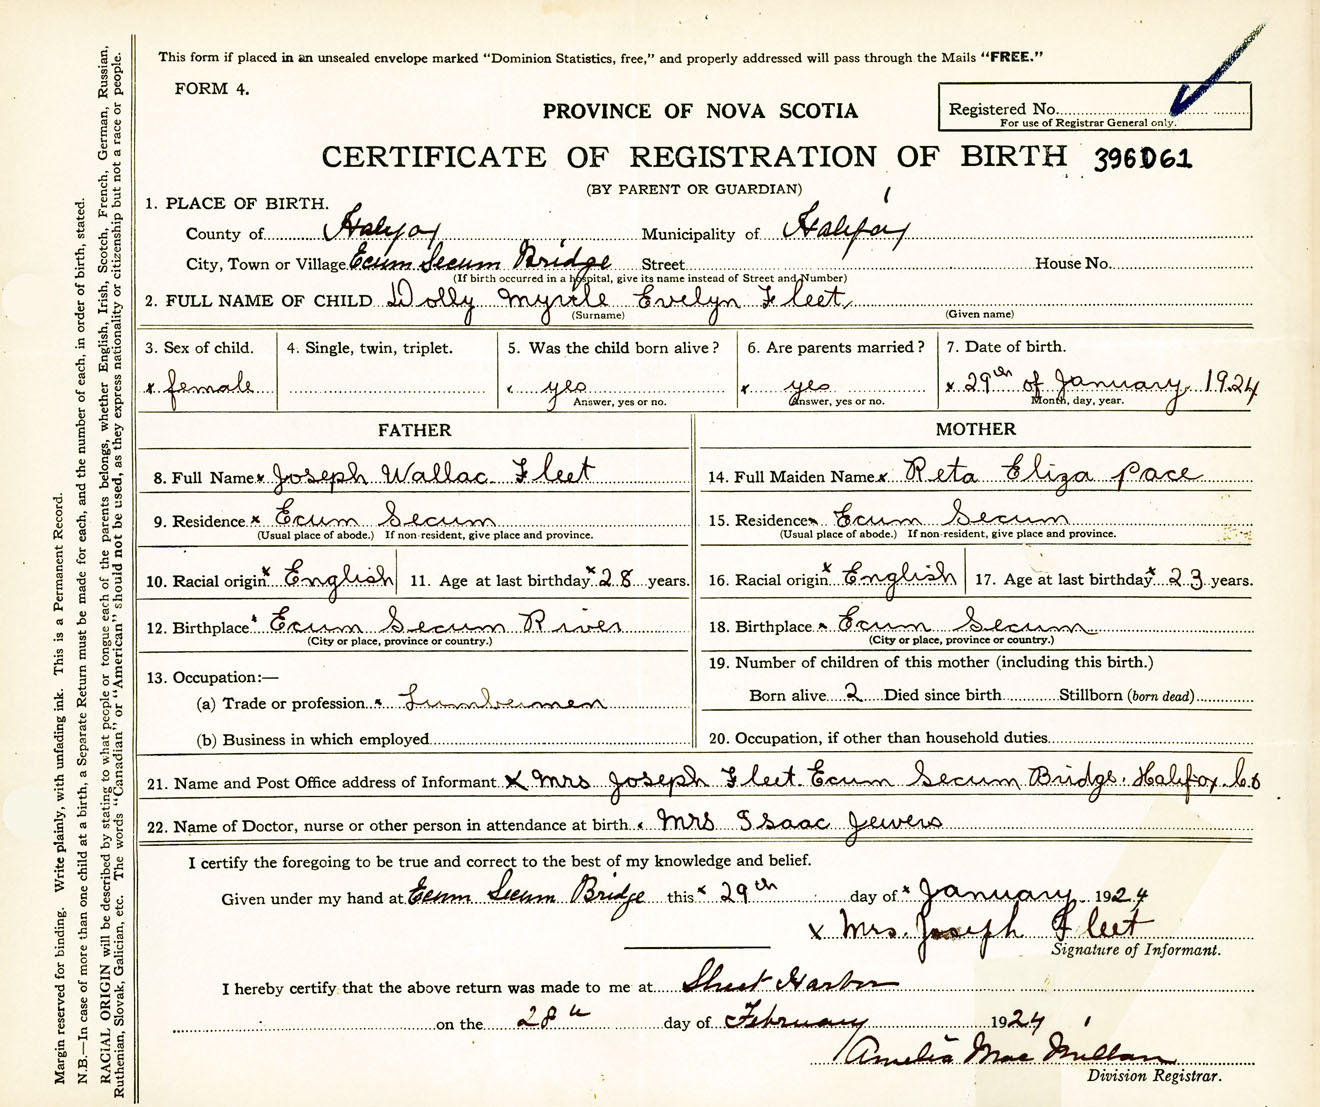 This form if placed in an unsealed envelope marked "Dominion Statistics, free," and properly addressed will pass through the Mails "FREE."
FORM 4.
Registered No.
For use of Registrar General only.
PROVINCE OF NOVA SCOTIA
CERTIFICATE OF REGISTRATION OF BIRTH 396061
(BY PARENT OR GUARDIAN)
1. PLACE OF BIRTH.
County of Halifax Municipality of Halifax
City, Town or Village Ecum Secum Bridge Street House No.
(If birth occurred in a hospital, give its name instead of Street and Number)
2. FULL NAME OF CHILD Dolly Myrtle Evelyn Fleet
(Surname) (Given name)
3. Sex of child. 4. Single, twin, triplet. 5. Was the child born alive? 6. Are parents married? 7. Date of birth.
x female x yes x yes x 29th of January 1924
Answer, yes or no. Answer, yes or no. Month, day, year.
FATHER MOTHER
8. Full Name x Joseph Wallac Fleet 14. Full Maiden Name x Reta Eliza Pace
9. Residence x Ecum Secum 15. Residence x Ecum Secum
(Usual place of abode.) If non-resident, give place and province. (Usual place of abode.) If non-resident, give place and province.
10. Racial origin x English 11. Age at last birthday x 28 years. 16. Racial origin x English 17. Age at last birthday x 23 years.
12. Birthplace x Ecum Secum River 18. Birthplace x Ecum Secum
(City or place, province or country.) (City or place, province or country.)
13. Occupation:— 19. Number of children of this mother (including this birth.)
(a) Trade or profession x Lumbermen Born alive 2 Died since birth Stillborn (born dead)
(b) Business in which employed 20. Occupation, if other than household duties
21. Name and Post Office address of Informant x Mrs Joseph Fleet. Ecum Secum Bridge. Halifax Co
22. Name of Doctor, nurse or other person in attendance at birth x Mrs Isaac Jewers
I certify the foregoing to be true and correct to the best of my knowledge and belief.
Given under my hand at Ecum Secum Bridge this x 29th day of x January 1924
x Mrs. Joseph Fleet
Signature of Informant.
I hereby certify that the above return was made to me at Sheet Harbor
on the 28th day of February 1924
Amelia MacMillan
Division Registrar.
Margin reserved for binding. Write plainly, with unfading ink. This is a Permanent Record.
N.B.—In case of more than one child at a birth, a Separate Return must be made for each, and the number of each, in order of birth, stated.
RACIAL ORIGIN will be described by stating to what people or tongue each of the parents belongs, whether English, Irish, Scotch, French, German, Russian,
Ruthenian, Slovak, Galician, etc. The words "Canadian" or "American" should not be used, as they express nationality or citizenship but not a race or people.